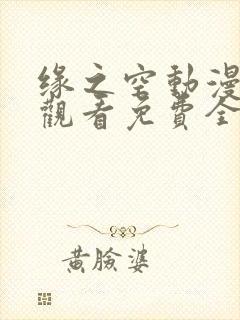 缘之空動漫
觀看免費全
黃臉婆